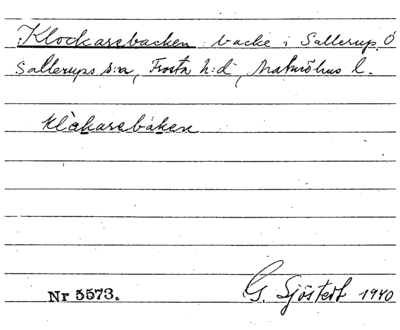 Klockarebacken : backe i Sallerup, Ö
Sallerups s:n, Frosta h:d, Malmöhus l.
klåkarebaken
Nr 5573.
G. Sjöstedt 1940